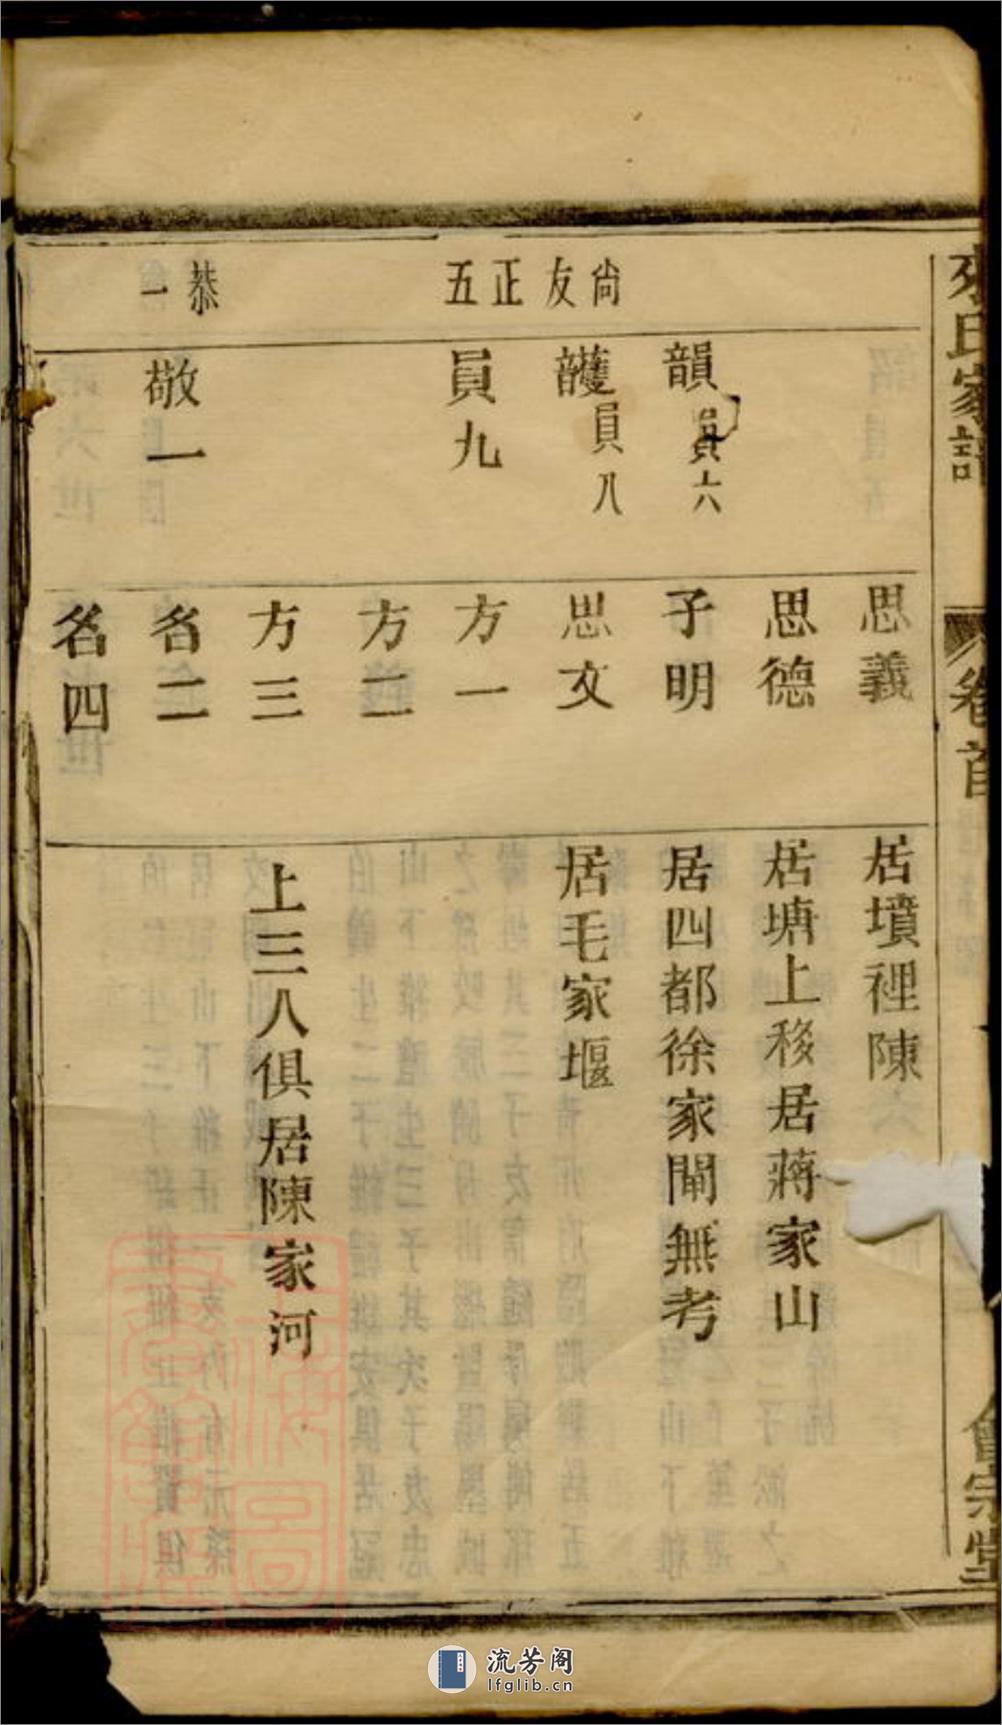 來氏家譜
卷首
會宗堂
尙友
正五
恭一
韻 員六
頀 員八
員九
敬一
思義
思德
子明
思文
方一
方二
方三
名二
名四
居墳裡陳
居塘上移居蔣家山
居四都徐家閘無考
居毛家堰
上三八俱居陳家河
流芳阁
lfglib.cn